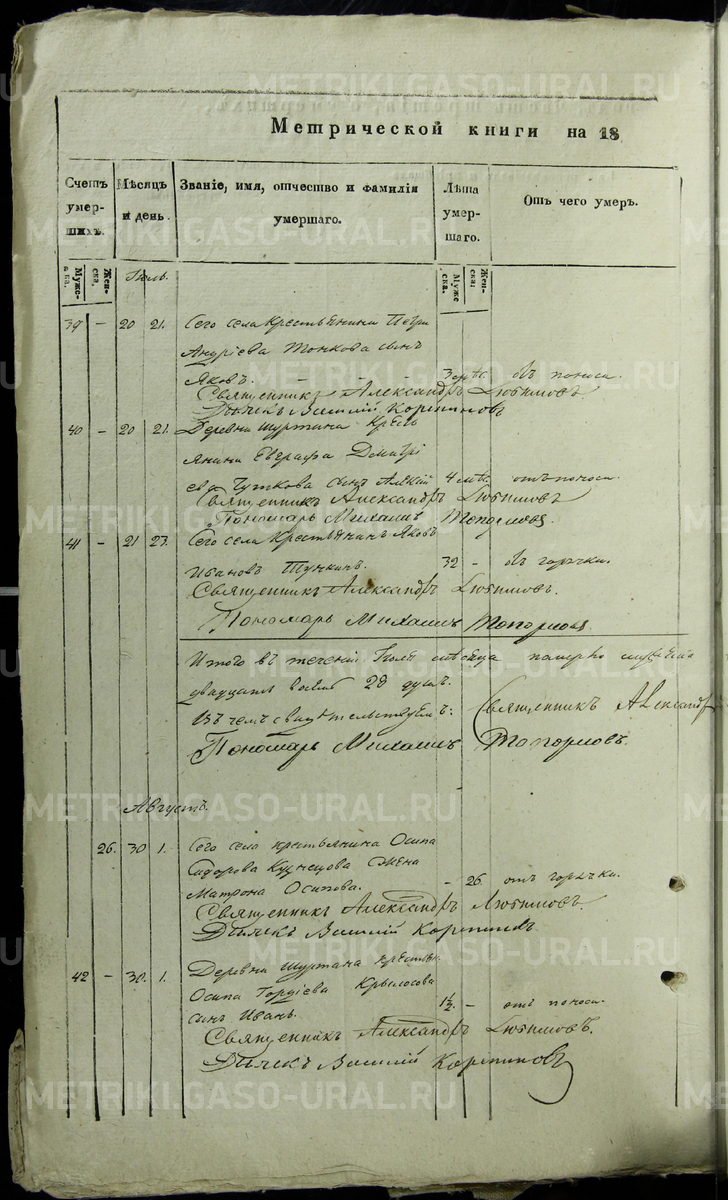 Метрической книги на 18
Счетъ умер-шихъ.
Мѣсяцъ и день.
Званіе, имя, отчество и фамилія умершаго.
Лѣта умер-шаго.
Отъ чего умеръ.
Муже-ска.
Жен-ска.
Муже ска.
Жен-ска:
Іюль.
39 – 20 21. Сего села Крестьянина Петра
Андріева Тонкова сынъ
Яковъ. 3 отъ поноса.
Священникъ Александръ Любимовъ
Дьячекъ Василій Корепановъ
40 – 20 21. Деревни Шуртана Кресть
янина Евграфа Дмитрі
ева сынъ Алексій 4 мѣс. отъ поноса.
Священникъ Александръ Любимовъ
Пономарь Михаилъ Топорковъ.
41 – 21 23. Сего села Крестьянинъ Яковъ
Ивановъ 32 – отъ горячки.
Священникъ Александръ Любимовъ.
Пономарь Михаилъ Топорковъ
Итого въ теченіи Іюля мѣсяца померло
двадцать восемь 28 душъ.
Въ чемъ свидѣтельствуемъ: Священникъ Александръ
Пономарь Михаилъ Топорковъ.
Августъ.
26. 30 1. Сего села крестьянина Осипа
Сидорова Кузнецова жена
Матрона Осипова. – 26 отъ горячки.
Священникъ Александръ Любимовъ.
Дьячекъ Василій Корепановъ
42 – 30. 1. Деревни Шуртана крестьян.
Осипа Гордіева Крылосова
сынъ Иванъ. 1½. – отъ поноса.
Священникъ Александръ Любимовъ.
Дьячекъ Василій Корепановъ
METRIKI.GASO-URAL.RU